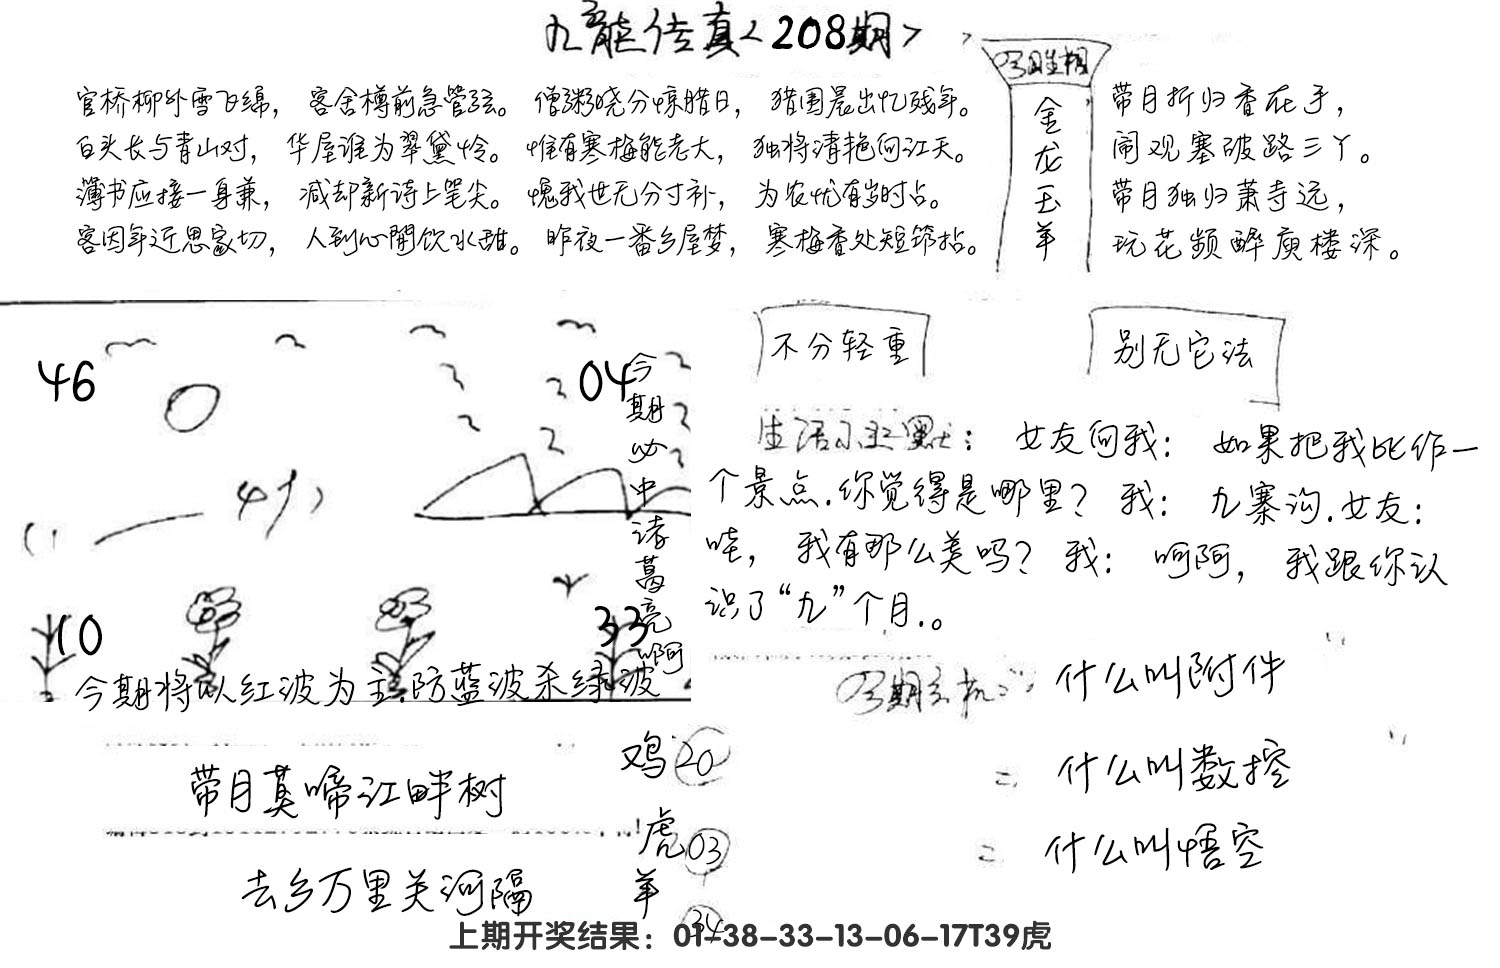 九龙传真<208期>
官桥柳外雪飞绵，客舍樽前急管弦。僧粥晓分惊腊日，猎围晨出忆残年。
白头长与青山对，华屋谁为翠黛怜。惟有寒梅能老大，独将清艳向江天。
薄书应接一身兼，减却新诗上笔尖。愧我世无分寸补，为农忧有岁时占。
客因年近思家切，人到心闲饮水甜。昨夜一番乡屋梦，寒梅香处短筇拈。
今期生相
金龙玉羊
带月折归香在手，
闹观塞破路三丫。
带月独归萧寺远，
玩花频醉庾楼深。
46
04
10
33
今期必中诸葛亮啊
今期将以红波为主.防蓝波杀绿波
不分轻重
别无它法
生活小幽默：女友问我：如果把我比作一
个景点.你觉得是哪里？我：九寨沟.女友：
哇，我有那么美吗？我：呵阿，我跟你认
识了“九”个月.。
今期玄机：什么叫附件
= 什么叫数控
= 什么叫悟空
带月莫啼江畔树
去乡万里关河隔
鸡 20
虎 03
羊 34
上期开奖结果：01-38-33-13-06-17T39虎